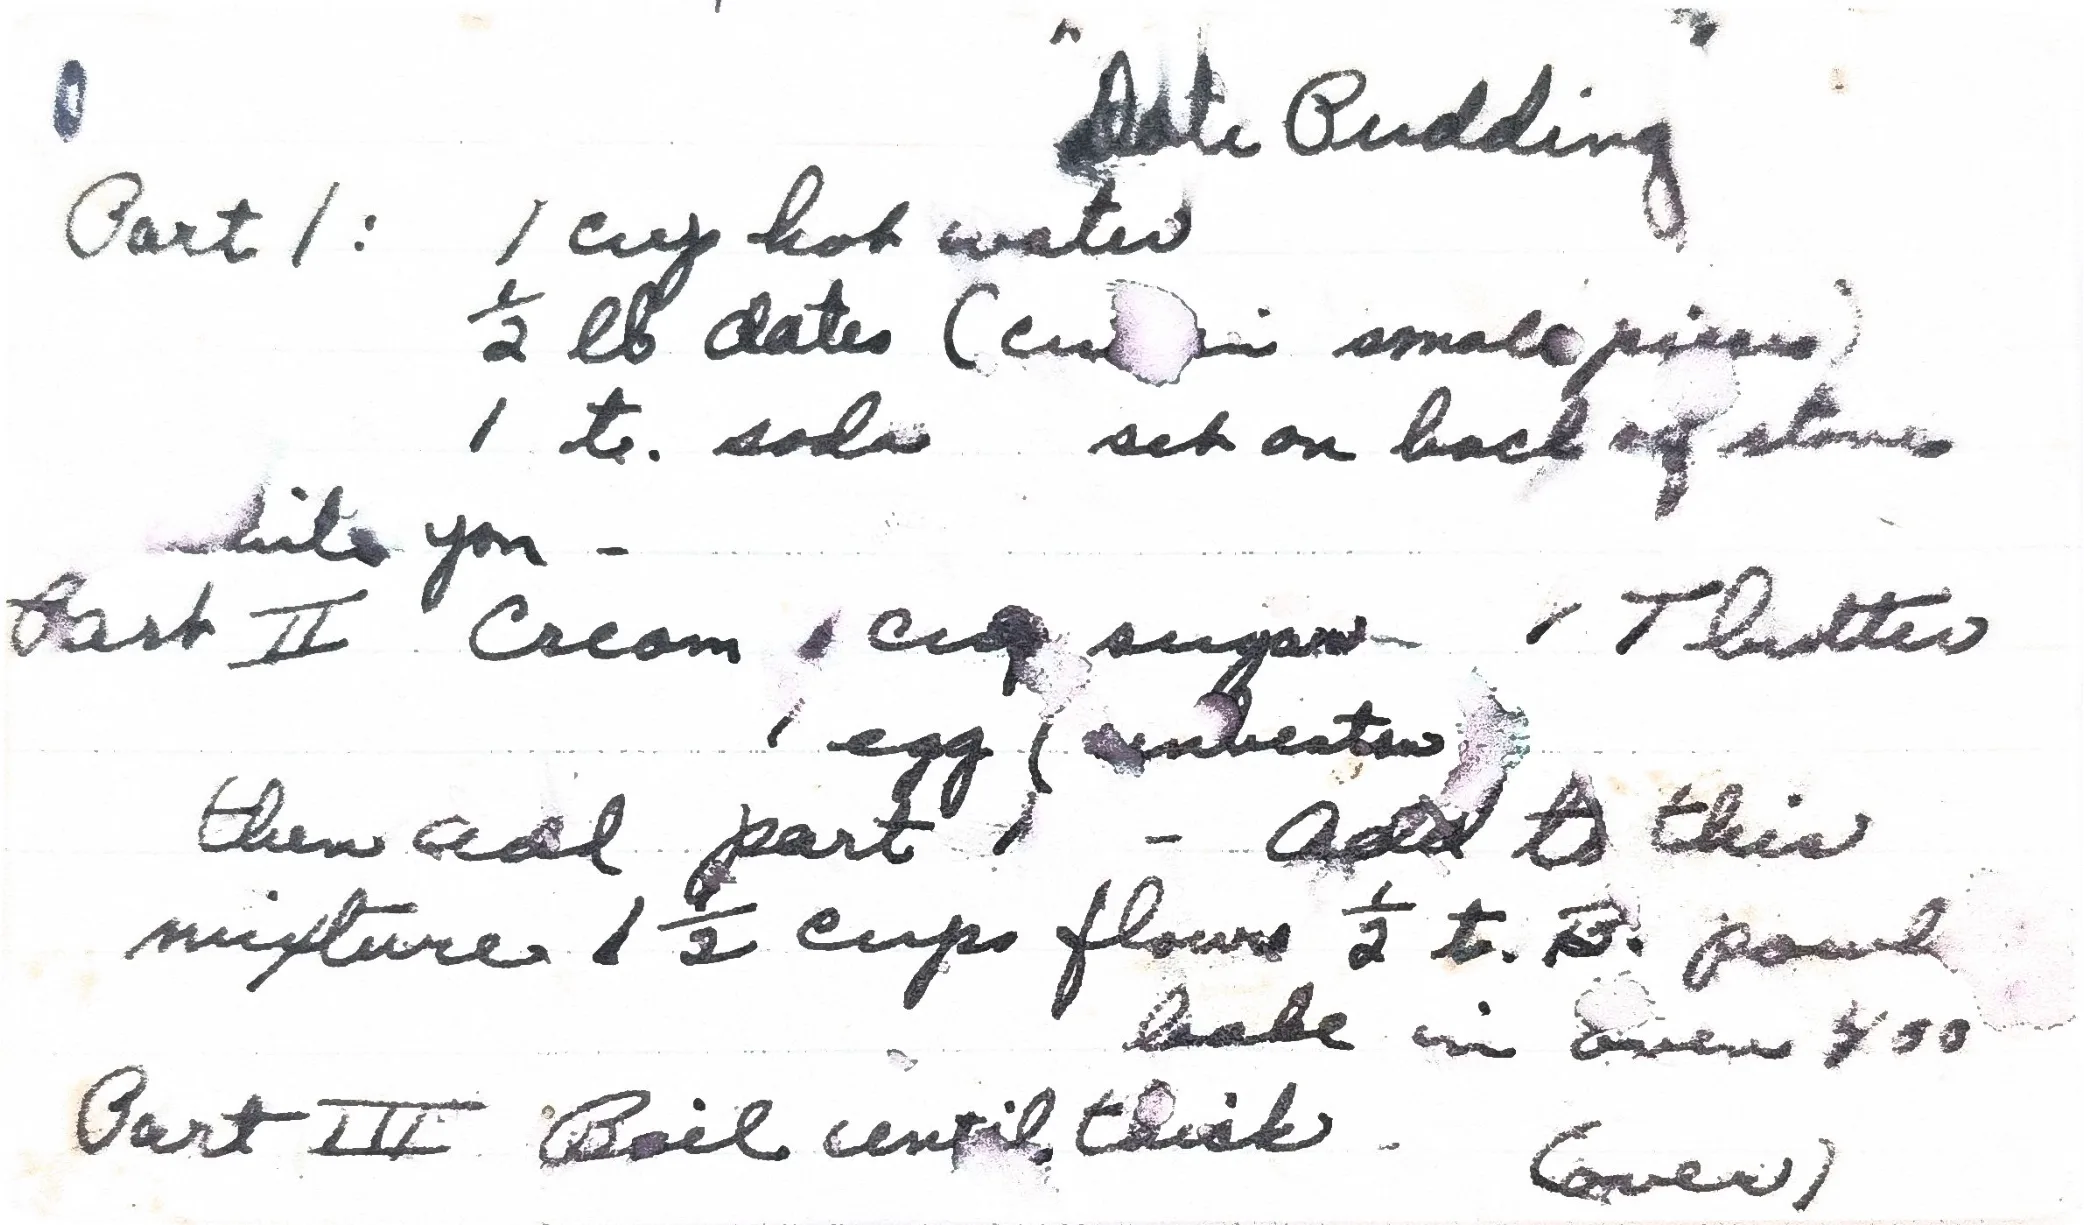 "Date Pudding"
Part 1: 1 cup hot water
1/2 lb dates (cut in small pieces)
1 t. soda set on back of stove
while you -
Part II Cream 1 cup sugar 1 T butter
1 egg (unbeaten)
then add part 1 - Add to this
mixture 1 1/2 cups flour 1/2 t. B. powd
bake in oven 400
Part III Boil until thick.
(over)